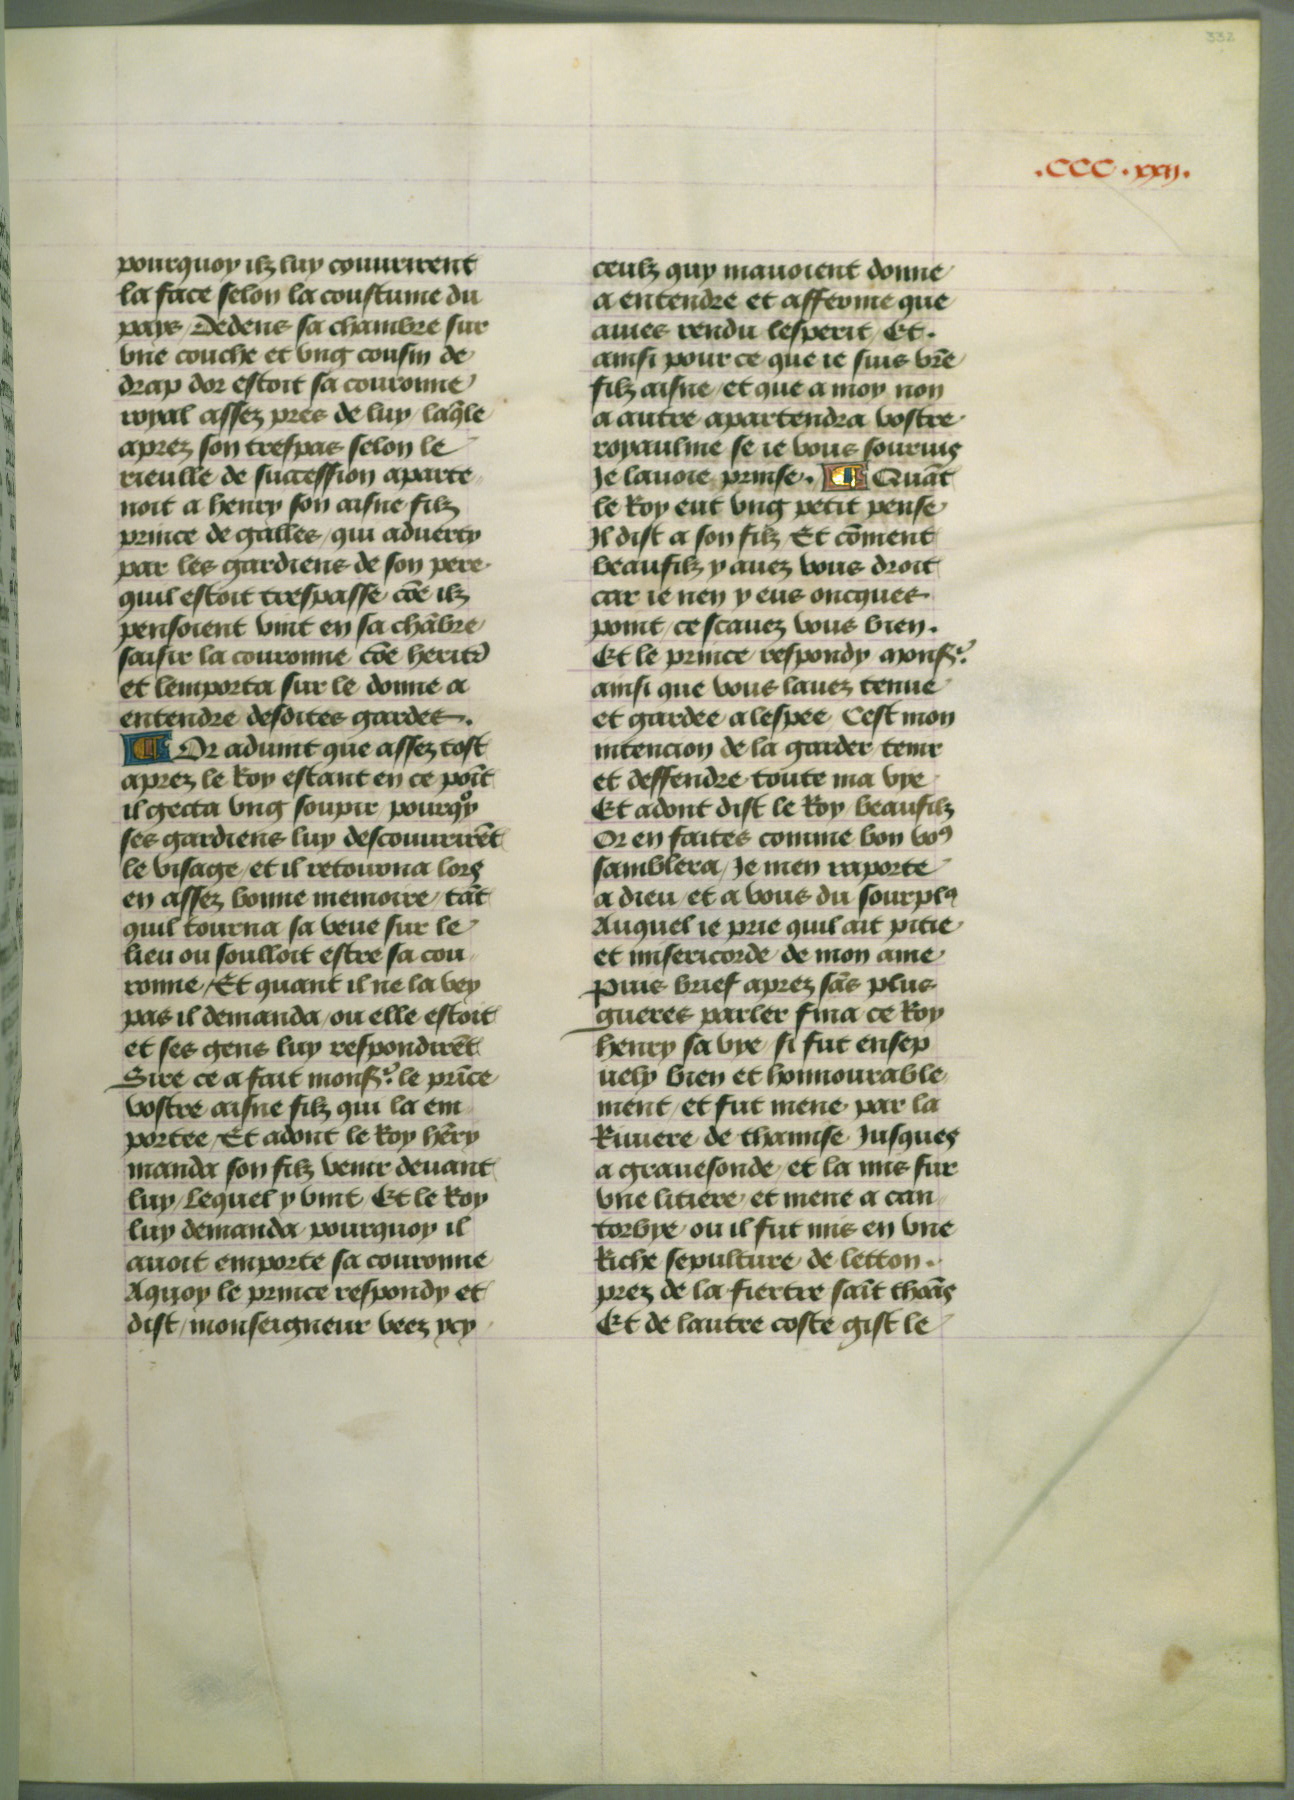 332
.CCC.xxij.
pourquoy ilz luy couurirent
la face selon la coustume du
pays / Dedens sa chambre sur
vne couche et vng cousin de
drap dor estoit sa couronne
royal assez pres de luy / laq̄le
aprez son trespas selon le
rieulle de succession aparte
noit a henry son aisne filz
prince de galles / qui aduerty
par les gardiens de son pere
quil estoit trespasse cōe ilz
pensoient vint en sa chābre
saisir la couronne cōe herit̄
et lemporta sur le donne a
entendre desdites gardes.
¶ Or aduint que assez tost
aprez le Roy estant en ce poīt
il gecta vng soupir pourqͦy
ses gardiens luy descouurirēt
le visage / et il retourna lors
en assez bonne memoire / tāt
quil tourna sa veue sur le
lieu ou soulloit estre sa cou
ronne / Et quant il ne la vey
pas il demanda / ou elle estoit
et ses gens luy respondirēt
Sire ce a fait monsr̄. le prīce
vostre aisne filz qui la em
portee / Et adont le Roy hēry
manda son filz venir deuant
luy / Lequel y vint Et le Roy
luy demanda pourquoy il
auoit emporte sa couronne
Aquoy le prince respondy et
dist / monseigneur veez ycy
ceulz quy mauoient donne
a entendre et afferme que
auies rendu lesperit / Et.
ainsi pour ce que ie suis vr̄e
filz aisne / et que a moy non
a autre apartendra vostre
royaulme se ie vous souruis
Je lauoie prinse. ¶ Quāt
le Roy eut vng petit pense
Il dist a son filz Et cōment
beaufilz y auez vous droit
car ie nen y eus oncques
point / ce scauez vous bien.
Et le prince respondy monsr̄.
ainsi que vous lauez tenue
et gardee a lespee Cest mon
intencion de la garder tenir
et deffendre toute ma vye
Et adont dist le Roy / beaufilz
Or en faites comme bon voꝰ
samblera / Je men raporte
a dieu / et a vous du sourplꝰ
Auquel ie prie quil ait pitie
et misericorde de mon ame
Puis brief aprez sās plus
gueres parler fina ce Roy
henry sa vye / si fut ensep
uely bien et honnourable
ment / et fut mene par la
Riuiere de thamise Jusques
a grauesonde / et la mis sur
vne litiere / et mene a can
torbye / ou il fut mis en vne
Riche sepulture de letton.
prez de la fiertre saīt thoās
Et de lautre coste gist le